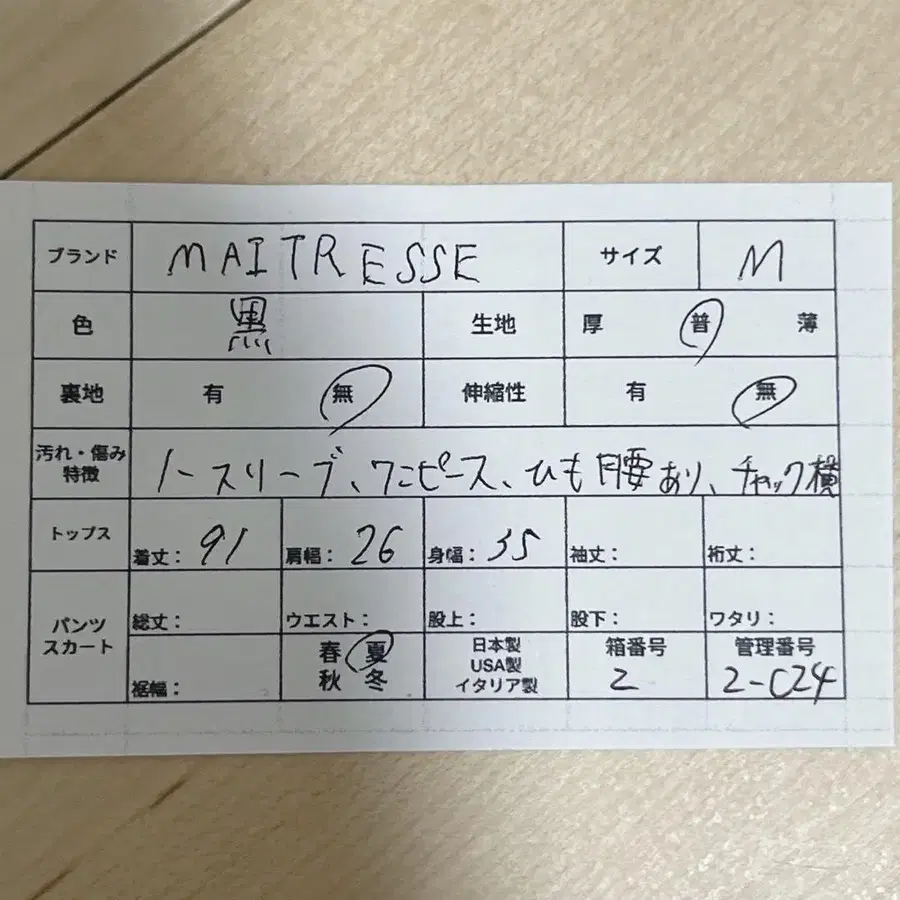 ブランド MAITRESSE サイズ M
色 黒 生地 厚 普 薄
裏地 有 無 伸縮性 有 無
汚れ・傷み
特徴 ノースリーブ、ワンピース、ひも腰あり、チャック横
トップス 着丈: 91 肩幅: 26 身幅: 35 袖丈: 裄丈:
パンツ
スカート 総丈: ウエスト: 股上: 股下: ワタリ:
裾幅: 春 夏
秋 冬
日本製
USA製
イタリア製
箱番号
2
管理番号
2-C24